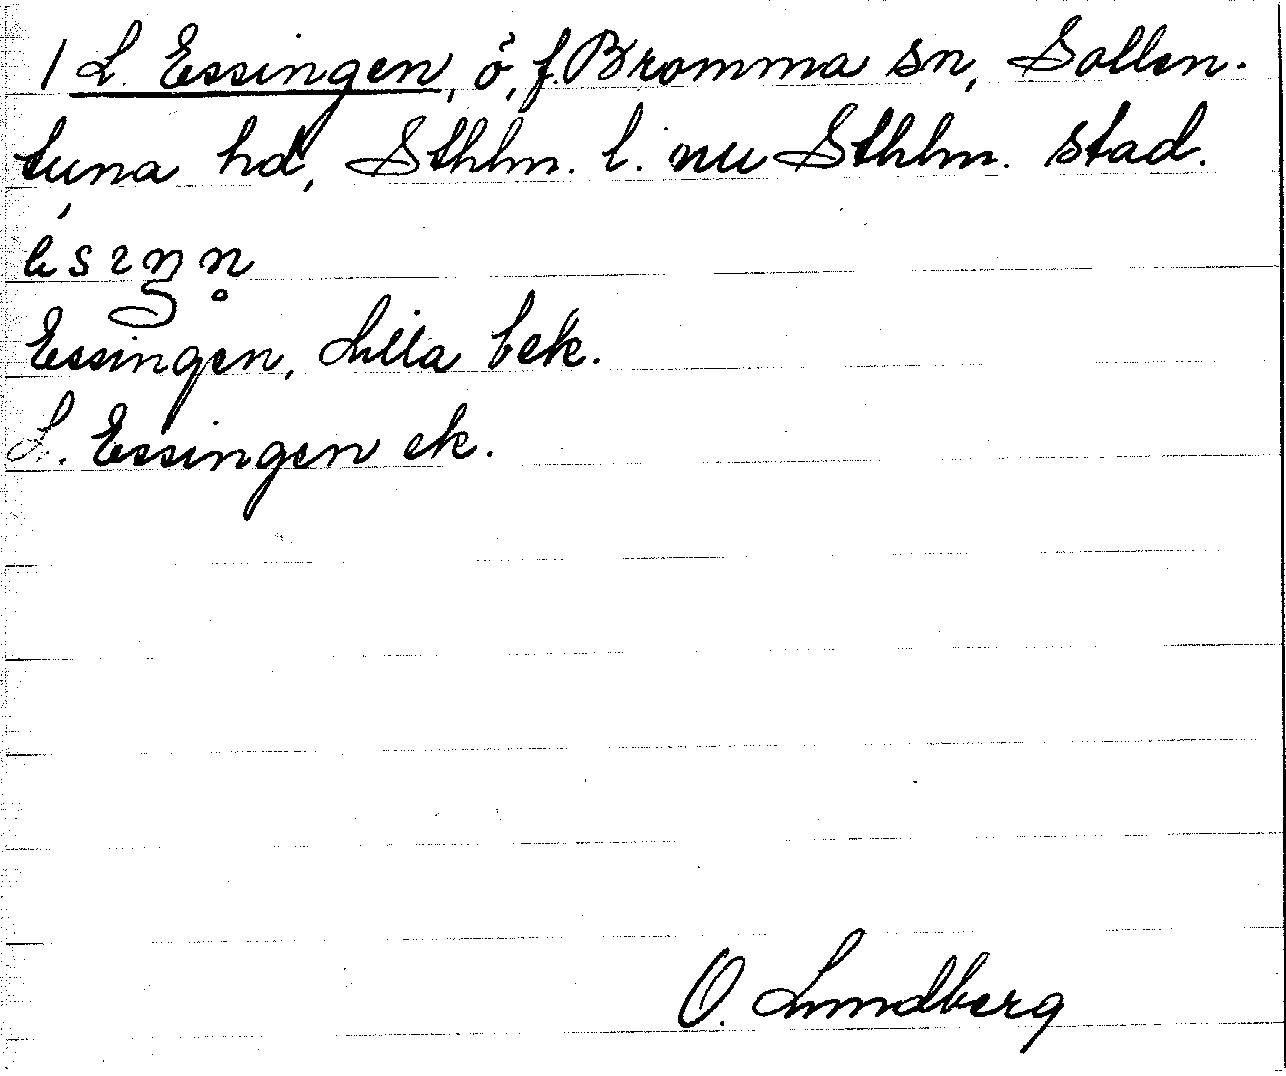 1 L. Essingen, ö, f. Bromma sn, Sollen-
tuna hd, Sthlm. l. nu Sthlm. stad.
Essingen, Lilla bek.
L. Essingen ek.
O. Lundberg